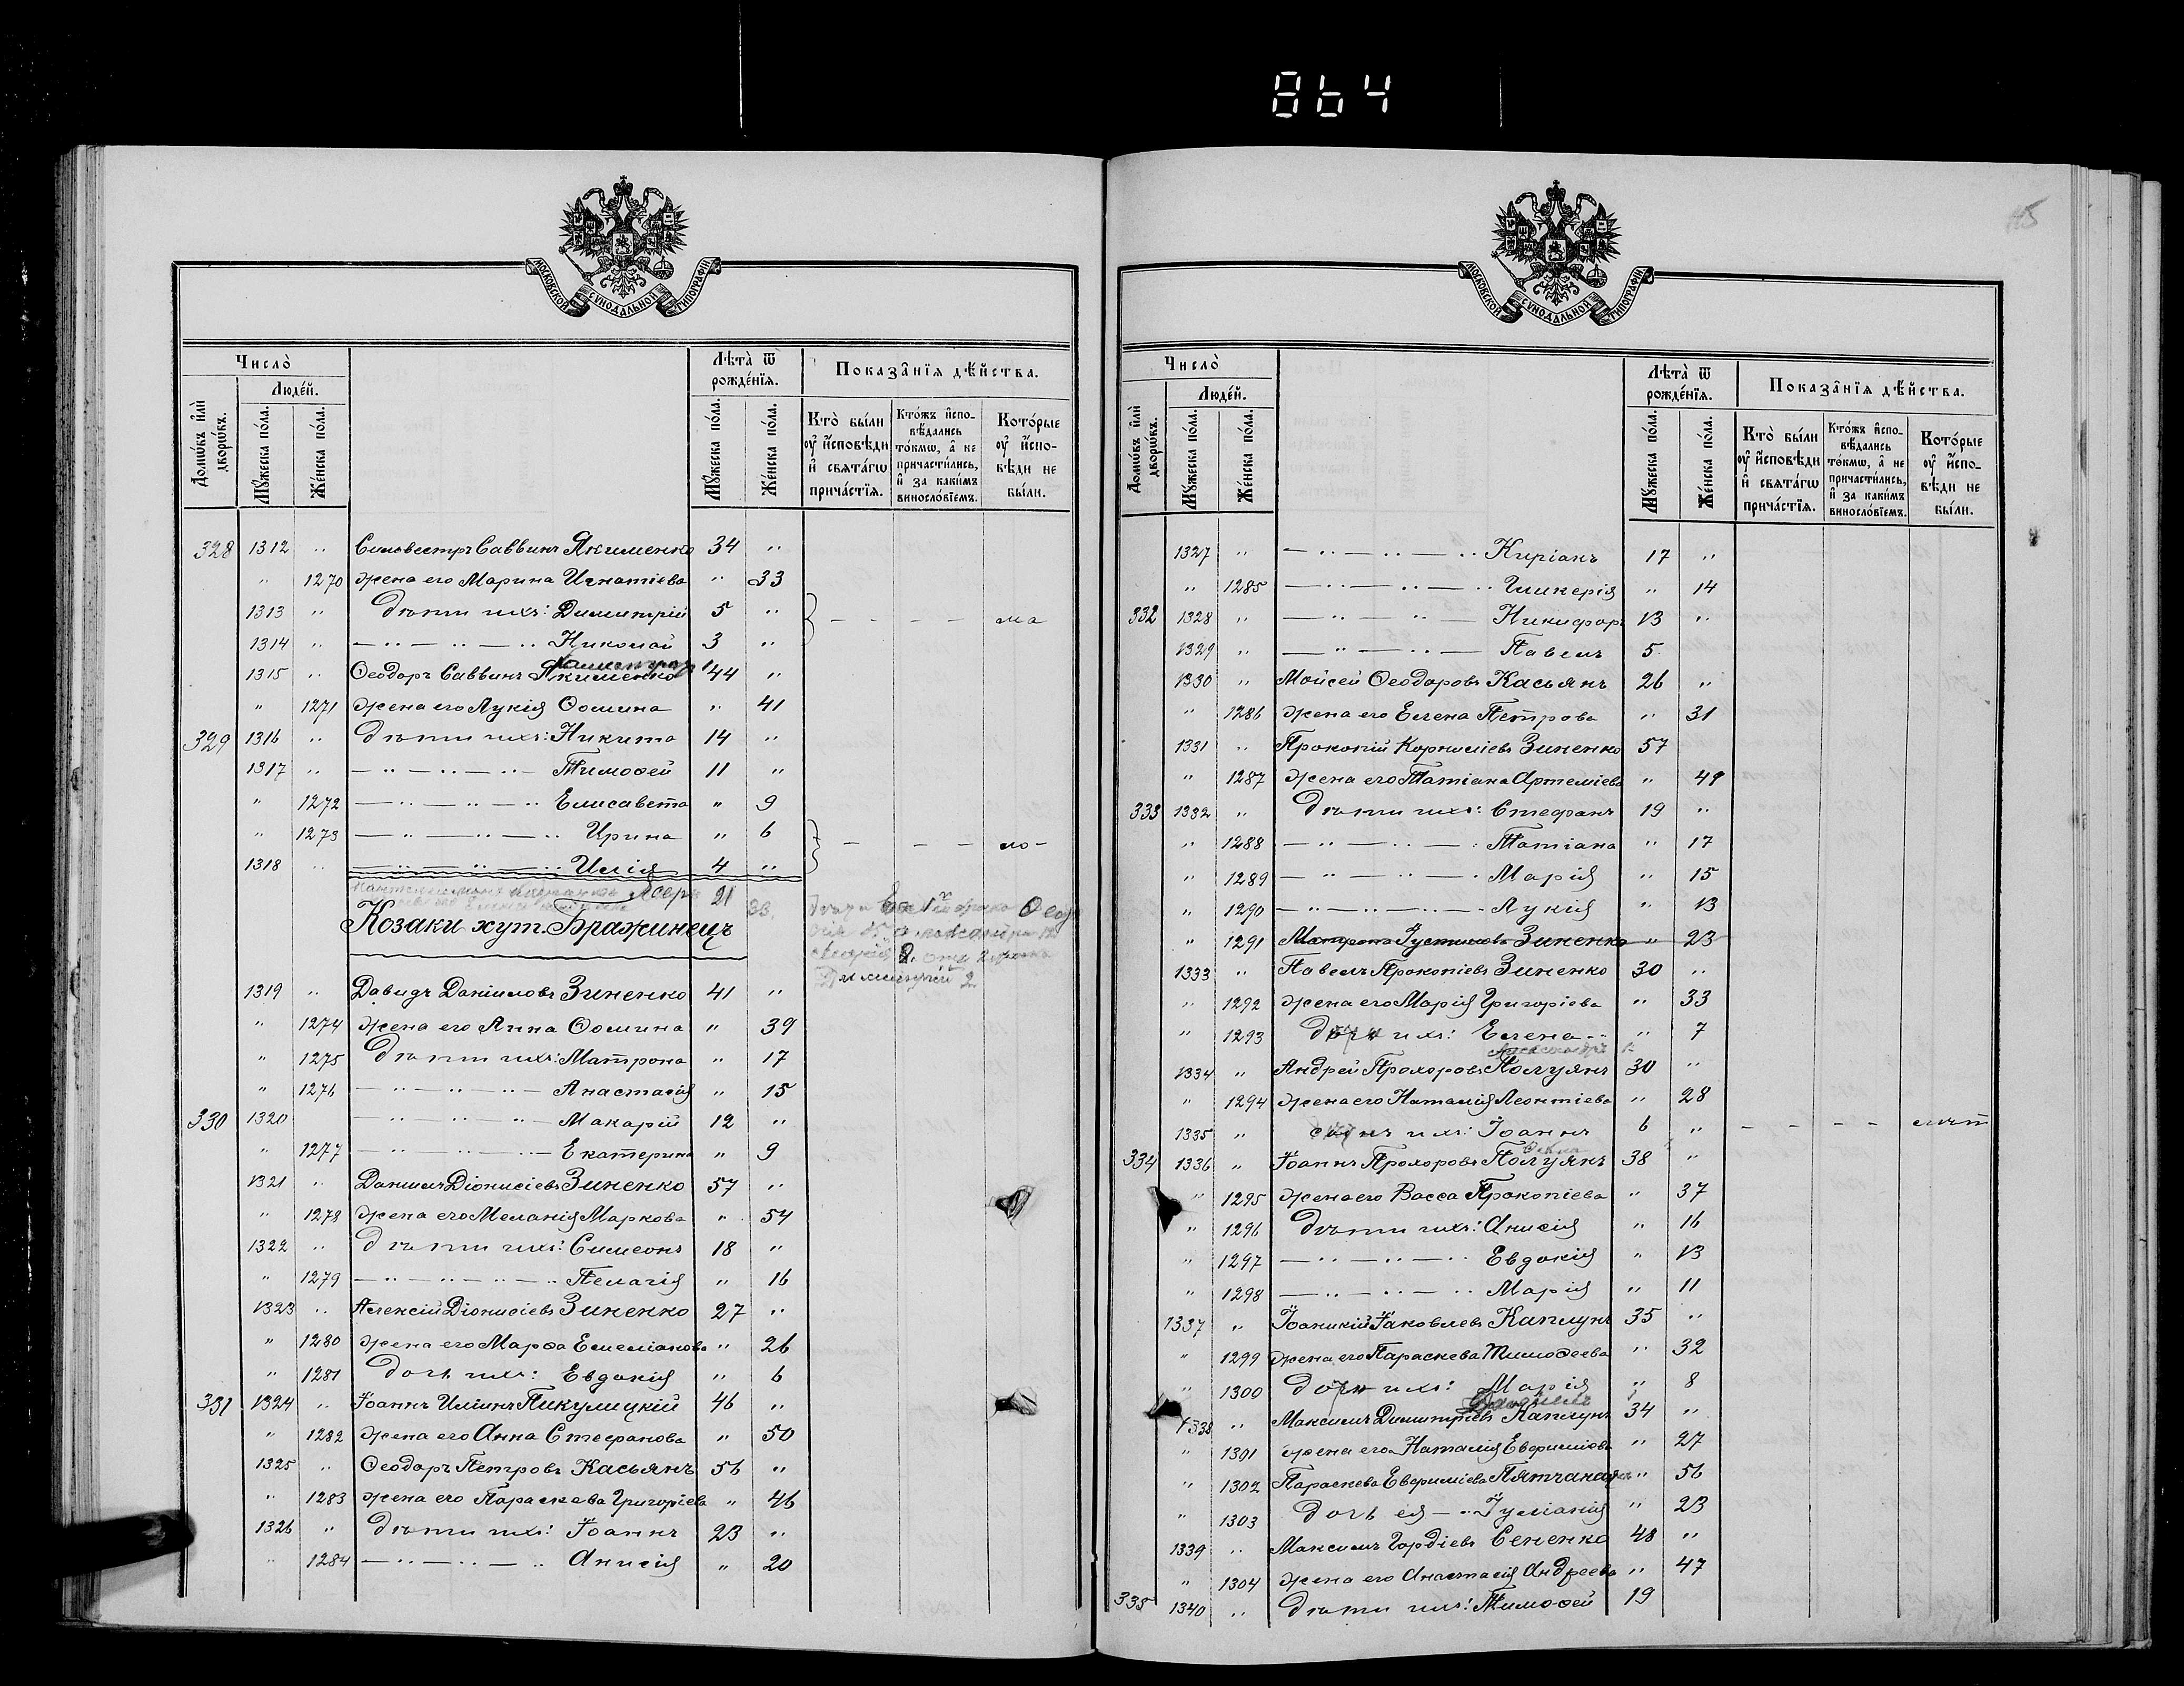 864
МОСКОВСКОЙ СѴНОДАЛЬНОЙ ТИПОГРАФІИ
Число̀
Домѡ́въ и҆лѝ дворѡ́въ.
Люде́й.
Мꙋ́жеска по́ла.
Же́нска по́ла.
Лѣта̀ ѿ рожде́нїѧ.
Мꙋ́жеска по́ла.
Же́нска по́ла.
Показа̑нїѧ дѣ́йства.
Кто̀ бы́ли оу҆ и҆сповѣди и҆ свѧта́гѡ прича́стїѧ.
Кто́жъ и҆спо-вѣдались то́кмѡ, а҆ не причасти́лись, и҆ за каки́мъ винослові́емъ.
Кото́рые оу҆ и҆спо-вѣди не бы́ли.
328 1312 " Сильвестръ Саввинъ Якименко 34 "
" 1270 жена его Марина Игнатіева " 33
1313 " дѣти ихъ: Димитрій 5 "
1314 " — " — " — " Николай 3 " — — — — ма
1315 " Ѳеодоръ Саввинъ Якименко 44 "
" 1271 жена его Лукія Ѳомина " 41
329 1316 " дѣти ихъ: Никита 14 "
1317 " — " — " — " — Тимоѳей 11 "
" 1272 — " — " — " Елисавета " 9
" 1273 — " — " — " Ирина " 6
1318 " — " — " — " Илія 4 " — — — ло-
21 33.
Димитрій 2
Козаки хут. Бражинецъ
1319 " Давидъ Даніиловъ Зиненко 41 "
" 1274 жена его Анна Ѳомина " 39
" 1275 дѣти ихъ: Матрона " 17
" 1276 — " — " — " — Анастасія " 15
330 1320 — " — " — " — Макарій 12 "
" 1277 — " — " — " — Екатерина " 9
1321 " Даніилъ Діонисіевъ Зиненко 57 "
" 1278 жена его Меланія Маркова " 54
1322 " дѣти ихъ: Симеонъ 18 "
" 1279 — " — " — " — " Пелагія " 16
1323 " Алексій Діонисіевъ Зиненко 27 "
" 1280 жена его Марѳа Емеліанова " 26
" 1281 дочь ихъ: Евдокія " 6
331 1324 " Іоаннъ Иліинъ Пикулицкій 46 "
" 1282 жена его Анна Стефанова " 50
1325 " Ѳеодоръ Петровъ Касьянъ 56 "
" 1283 жена его Параскева Григоріева " 46
1326 " дѣти ихъ: Іоаннъ 23 "
" 1284 — " — " — " Анисія " 20
МОСКОВСКОЙ СѴНОДАЛЬНОЙ ТИПОГРАФІИ
Число̀
Домѡ́въ и҆лѝ дворѡ́въ.
Люде́й.
Мꙋ́жеска по́ла.
Же́нска по́ла.
Лѣта̀ ѿ рожде́нїѧ.
Мꙋ́жеска по́ла.
Же́нска по́ла.
Показа̑нїѧ дѣ́йства.
Кто̀ бы́ли оу҆ и҆сповѣди и҆ свѧта́гѡ прича́стїѧ.
Кто́жъ и҆спо-вѣдались то́кмѡ, а҆ не причасти́лись, и҆ за каки́мъ винослові́емъ.
Кото́рые оу҆ и҆спо-вѣди не бы́ли.
1327 " — " — " — " Киріанъ 17 "
" 1285 — " — " — " Гликерія " 14
332 1328 " — " — " — Никифоръ 13 "
1329 " — " — " — Павелъ 5
1330 " Мойсей Ѳеодоровъ Касьянъ 26 "
" 1286 жена его Елена Петрова " 31
1331 " Прокопій Корниліевъ Зиненко 57
" 1287 жена его Татіана Артеміева " 49
333 1332 " дѣти ихъ: Стефанъ 19 "
" 1288 — " — " — " Татіана " 17
" 1289 — " — " — " Марія " 15
" 1290 — " — " — " — Лукія " 13
" 1291 Матрона Іустинова Зиненко " 23
1333 " Павелъ Прокопіевъ Зиненко 30 "
" 1292 жена его Марія Григоріева " 33
" 1293 дочь ихъ: Елена " 7
Александръ
1334 " Андрей Прохоровъ Полуянъ 30 "
" 1294 жена его Наталія Леонтіева " 28
1335 " сынъ ихъ: Іоаннъ 6 " — — — —
334 1336 " Іоаннъ Прохоровъ Полуянъ 38 "
" 1295 жена его Васса Прокопіева " 37
" 1296 дѣти ихъ: Анисія " 16
" 1297 — " — " — " Евдокія " 13
" 1298 — " — " — " Марія " 11
1337 " Іоаникій Іаковлевъ Каплунъ 35 "
" 1299 жена его Параскева Тимоѳеева " 32
" 1300 дочь ихъ: Марія " 8
1338 " Максимъ Димитріевъ Каплунъ 34 "
" 1301 жена его Наталія Евфиміова " 27
" 1302 Параскева Евфиміева " 56
" 1303 дочь ея — " Іуліанія " 23
1339 " Максимъ Гордіевъ Сененко 48 "
" 1304 жена его Анастасія Андреева " 47
335 1340 " дѣти ихъ: Тимоѳей 19